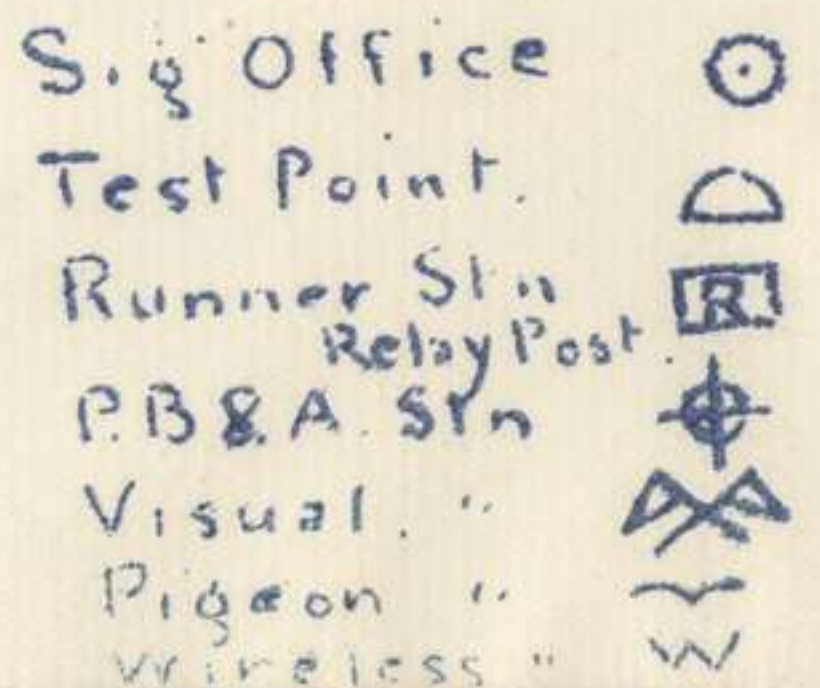 Sig Office
Test Point.
Runner Stn R
Relay Post.
P.B & A. Stn
Visual. "
Pigeon "
Wireless "